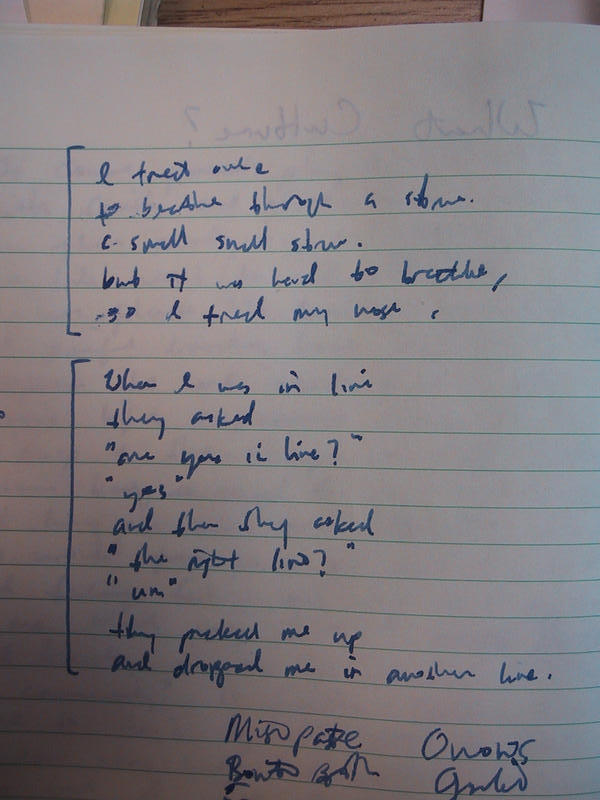 What Culture?
I tried once
to breathe through a straw.
a small small straw.
but it was hard to breathe,
so I tried my nose.
When I was in line
they asked
"are you in line?"
"yes"
and then they asked
"the right line?"
"um"
they picked me up
and dropped me in another line.
Miso paste Onions
Garlic